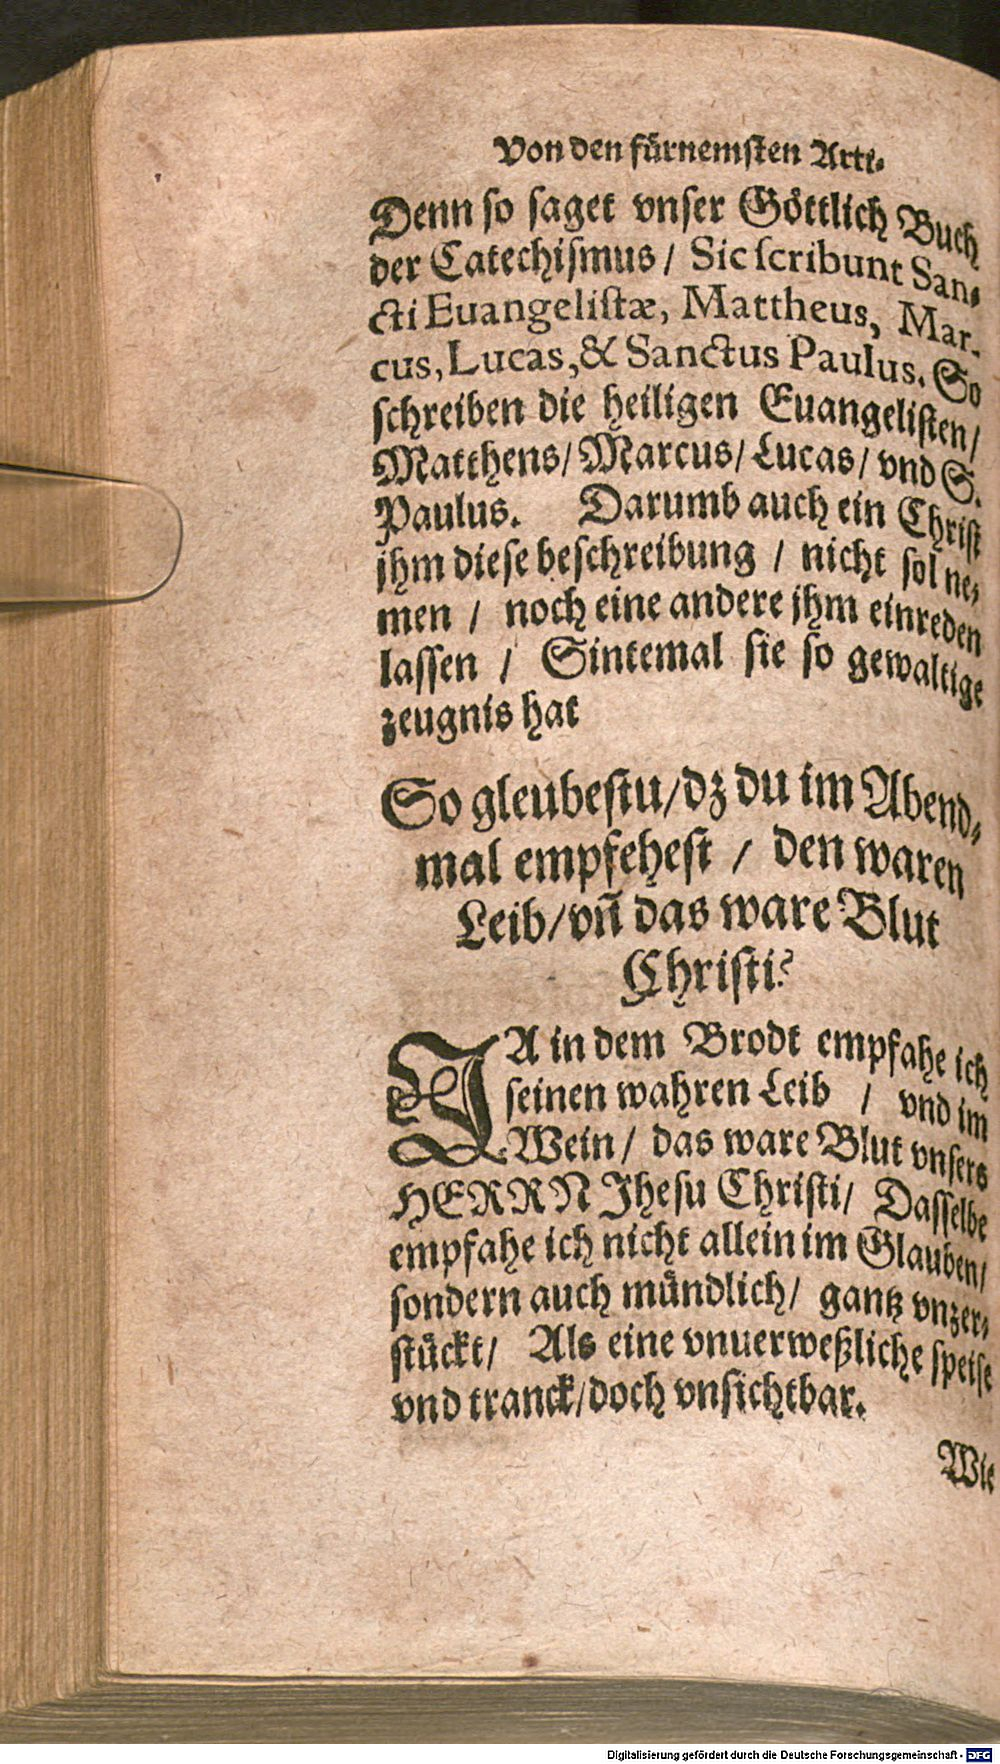 Von den fürnemsten Arti-
Denn so saget vnser Göttlich Buch
der Catechismus / Sic scribunt San-
cti Euangelistæ, Mattheus, Mar-
cus, Lucas, & Sanctus Paulus. So
schreiben die heiligen Euangelisten /
Matthens / Marcus / Lucas / vnd S.
Paulus. Darumb auch ein Christ
jhm diese beschreibung / nicht sol ne-
men / noch eine andere jhm einreden
lassen / Sintemal sie so gewaltige
zeugnis hat
So gleubestu / dz du im Abend-
mal empfehest / den waren
Leib / vñ das ware Blut
Christi?
JA in dem Brodt empfahe ich
seinen wahren Leib / vnd im
Wein / das ware Blut vnsers
HERRN Jhesu Christi / Dasselbe
empfahe ich nicht allein im Glauben /
sondern auch mündlich / gantz vnzer-
stückt / Als eine vnuerweßliche speise
vnd tranck / doch vnsichtbar.
Wie
Digitalisierung gefördert durch die Deutsche Forschungsgemeinschaft - DFG